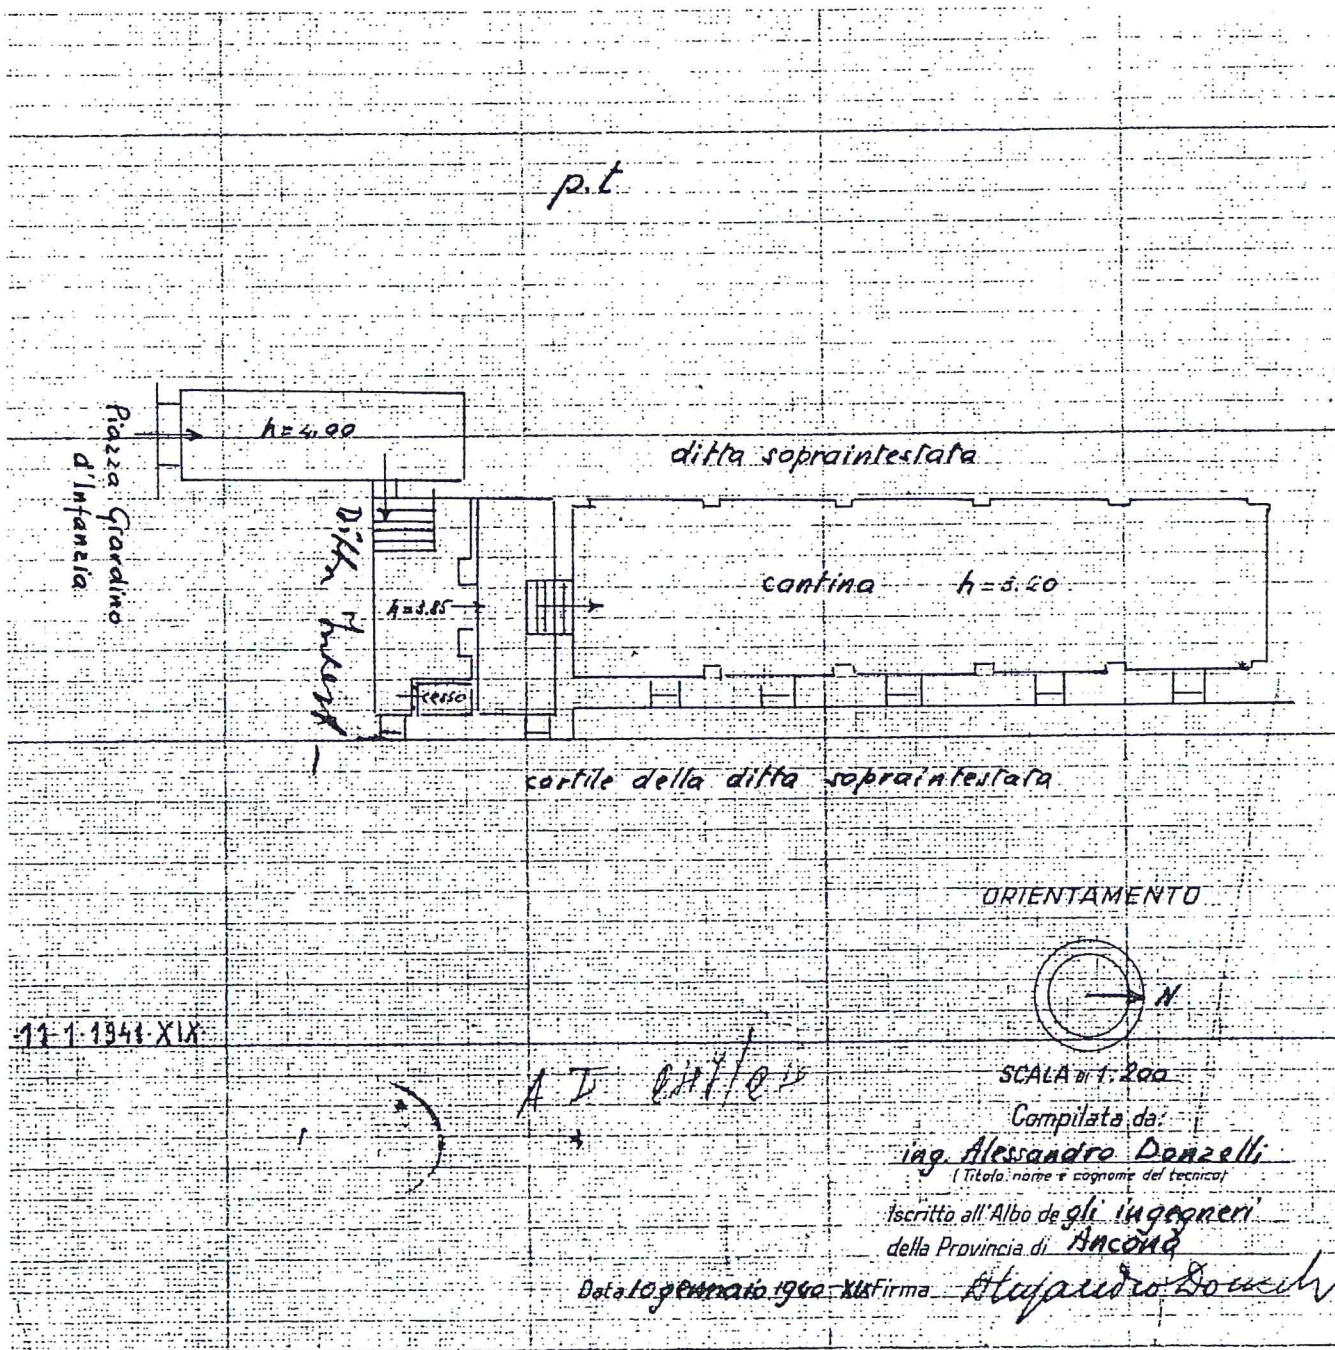 p.t
Piazza Giardino
d'Infanzia
h=4,00
ditta sopraintestata
Ditta
h=3.85
cantina h=3.20
cesso
cortile della ditta sopraintestata
ORIENTAMENTO
N
11-1-1941-XIX
SCALA DI 1:200
Compilata da:
ing. Alessandro Donzelli
(Titolo, nome e cognome del tecnico)
Iscritto all'Albo de gli ingegneri
della Provincia di Ancona
Data 10 gennaio 1940-XIX Firma Alessandro Donzelli